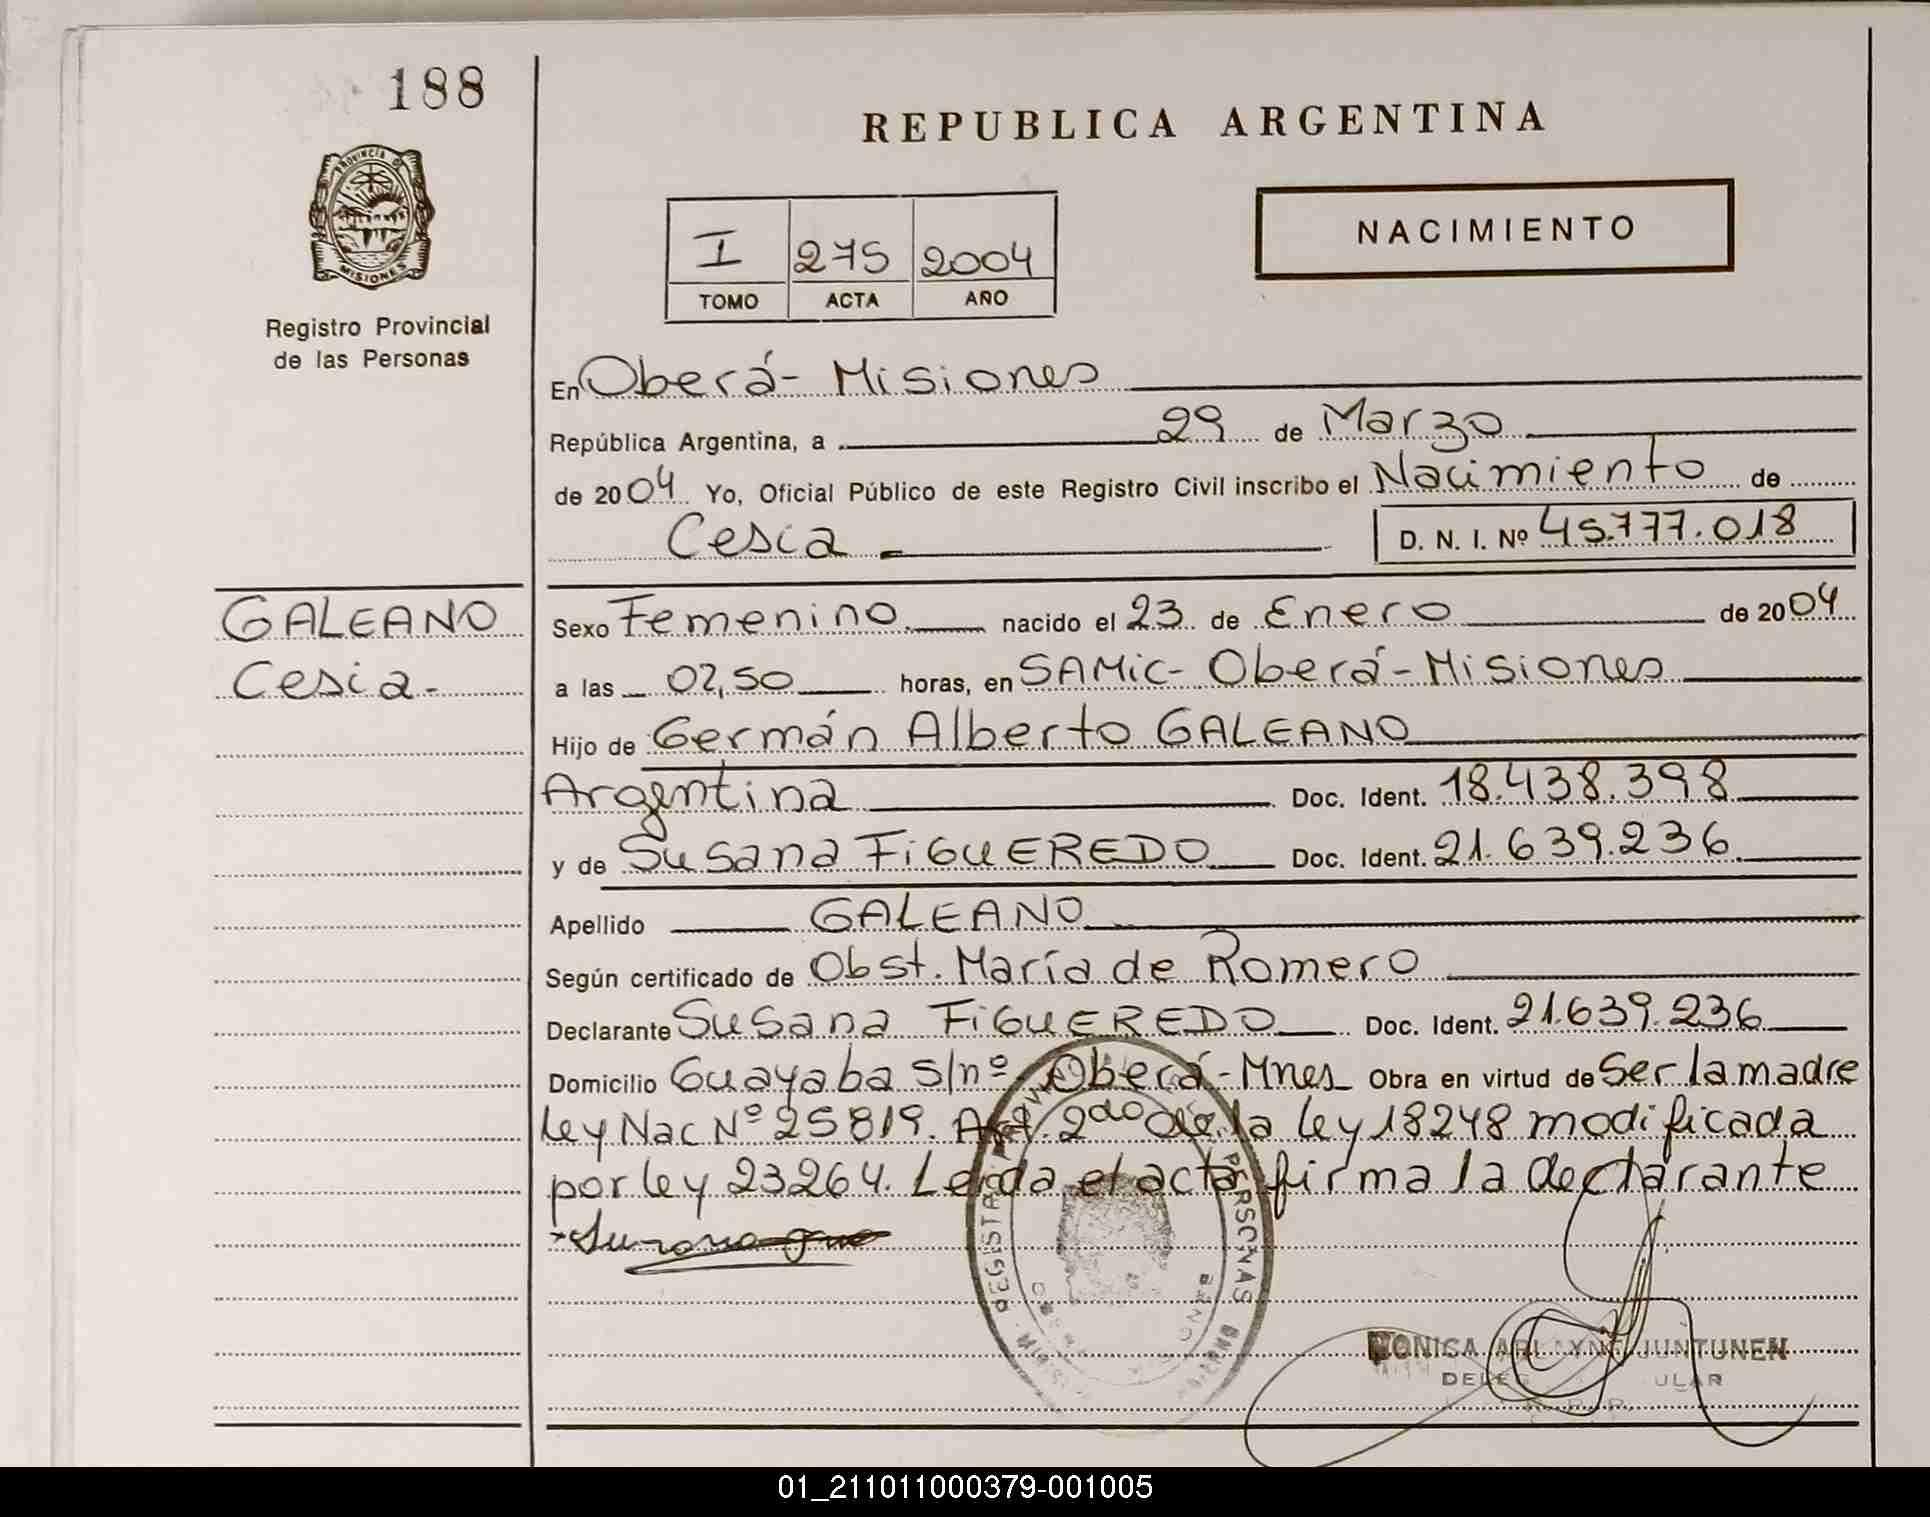 188
REPUBLICA ARGENTINA
PROVINCIA DE
MISIONES
Registro Provincial
de las Personas
I 275 2004
TOMO ACTA AÑO
NACIMIENTO
En Oberá - Misiones
República Argentina, a 29 de Marzo
de 2004 Yo, Oficial Público de este Registro Civil inscribo el Nacimiento de
Cesia D. N. I. Nº 45.777.018
GALEANO
Cesia.-
Sexo Femenino nacido el 23 de Enero de 2004
a las 02,50 horas, en SAMic - Oberá - Misiones
Hijo de Germán Alberto GALEANO
Argentina Doc. Ident. 18.438.398
y de Susana FiGUEREDO Doc. Ident. 21.639.236
Apellido GALEANO
Según certificado de Obst. María de Romero
Declarante Susana FiGUEREDO Doc. Ident. 21.639.236
Domicilio Guayaba s/nº Oberá - Mnes Obra en virtud de Ser la madre
ley Nac Nº 25819. Art. 2do de la ley 18248 modificada
por ley 23264. Leida el acta firma la declarante
PERSONAS
MONICA JUNTUNEN
01_211011000379-001005